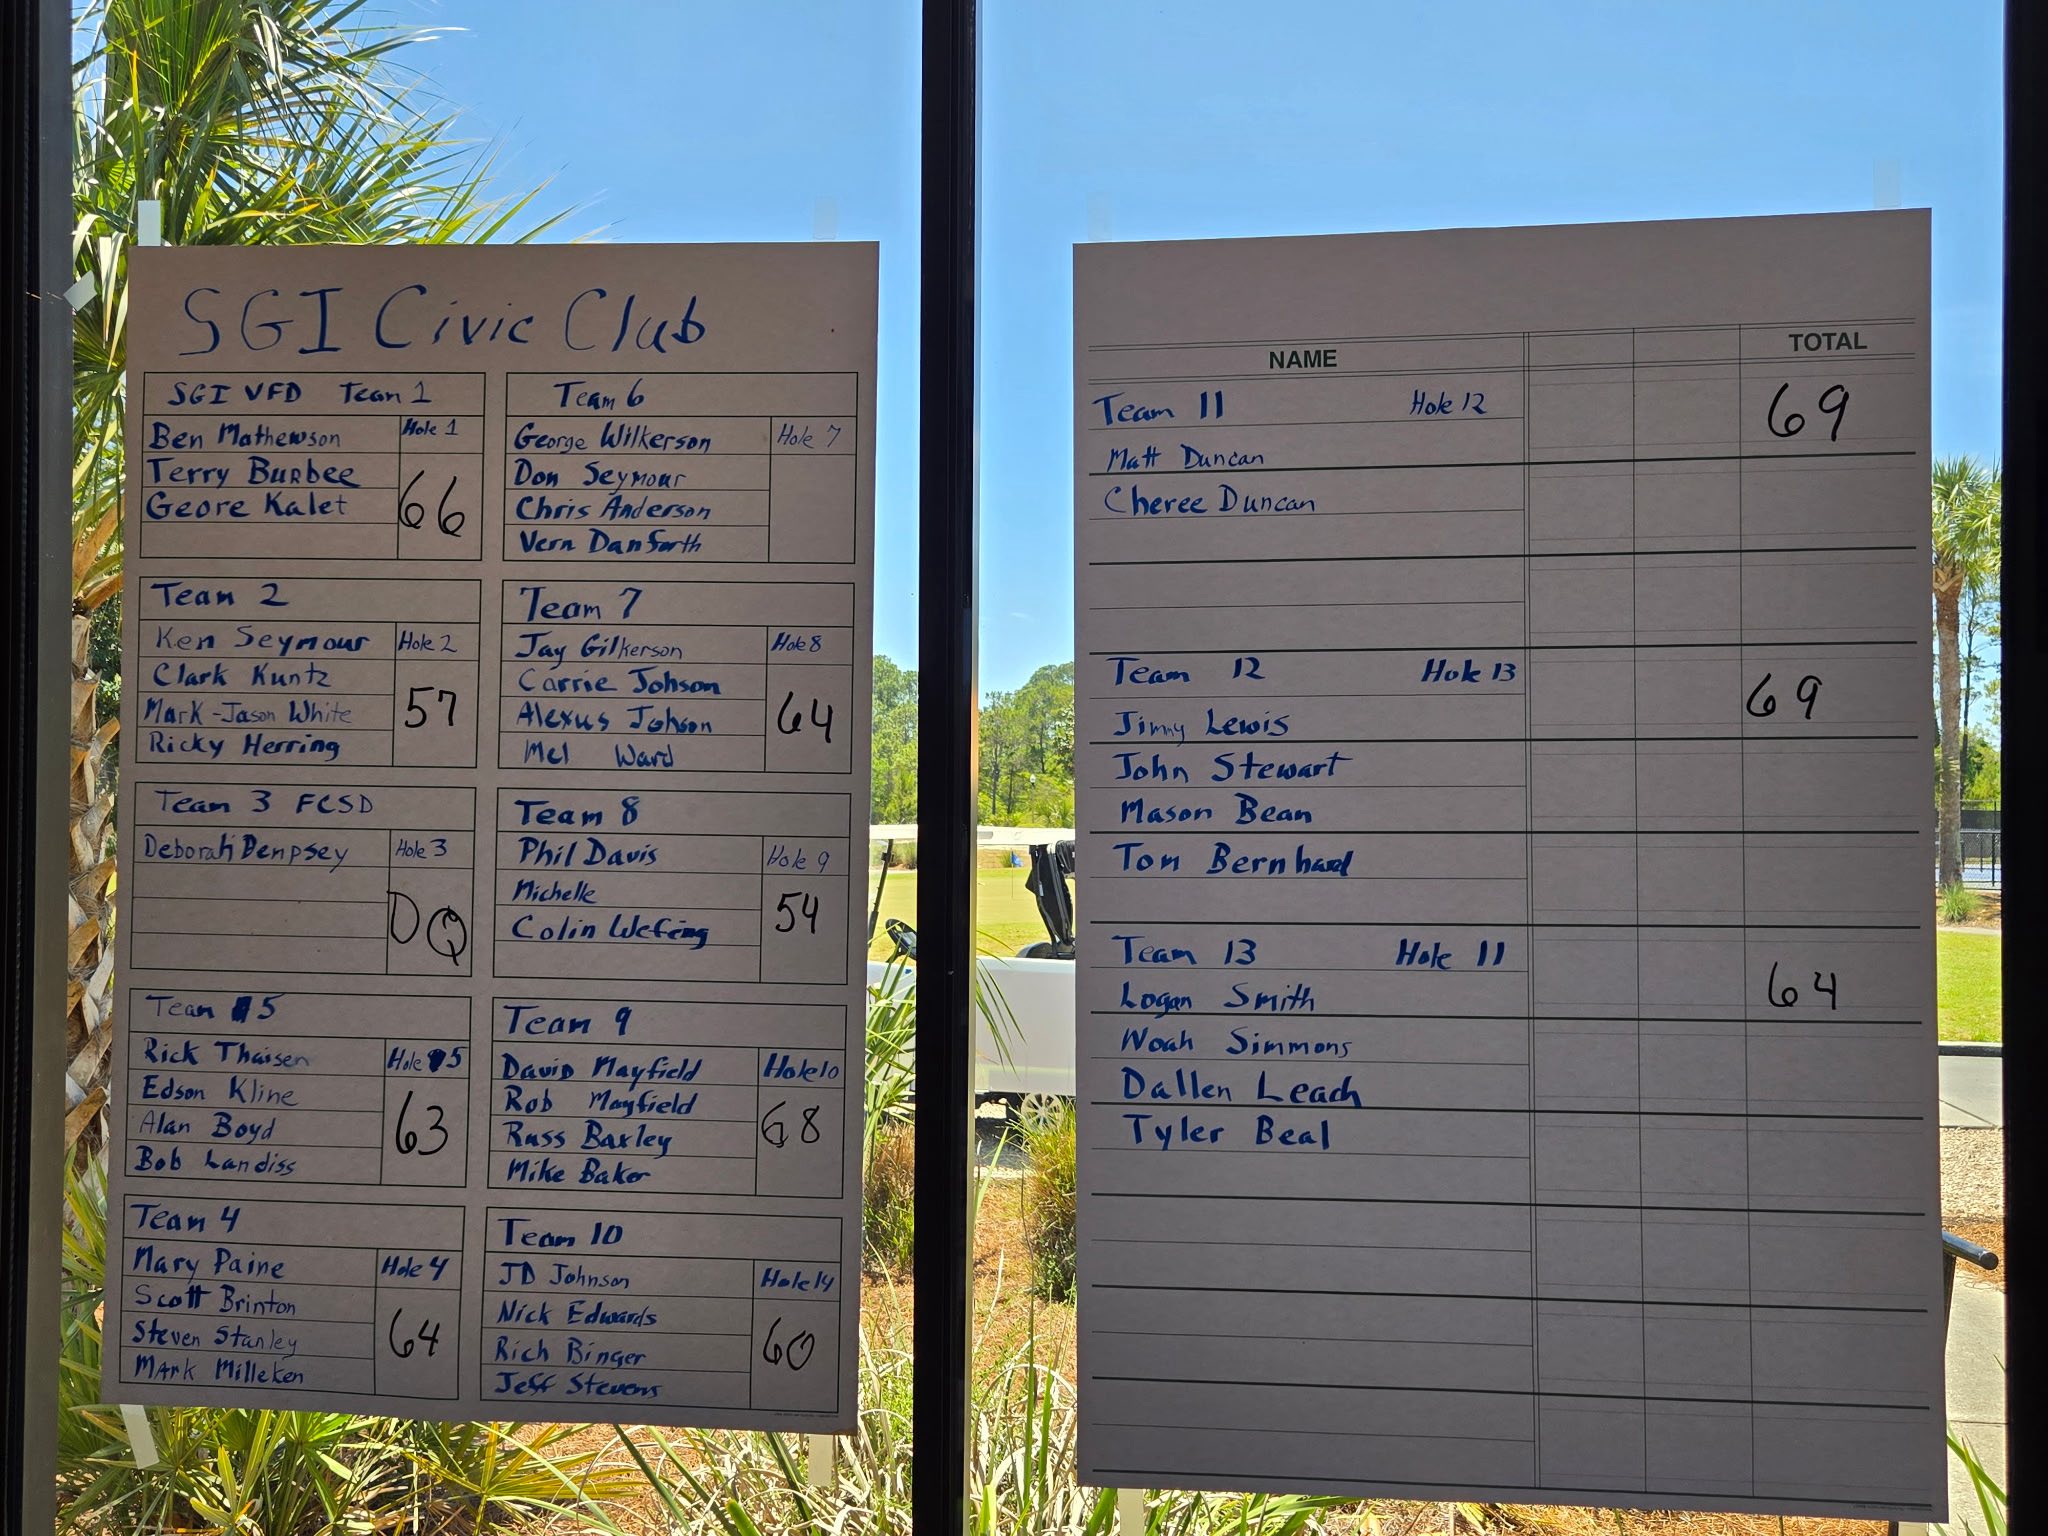 SGI Civic Club
SGI VFD Team 1
Ben Mathewson Hole 1
Terry Burbee
Geore Kalet
66
Team 2
Ken Seymour Hole 2
Clark Kuntz
Mark-Jason White
Ricky Herring
57
Team 3 FCSD
Deborah Denpsey Hole 3
DQ
Team 5
Rick Thaisen Hole 5
Edson Kline
Alan Boyd
Bob Landiss
63
Team 4
Mary Paine Hole 4
Scott Brinton
Steven Stanley
Mark Milleken
64
Team 6
George Wilkerson Hole 7
Don Seymour
Chris Anderson
Vern Danforth
Team 7
Jay Gilkerson Hole 8
Carrie Johson
Alexus Johson
Mel Ward
64
Team 8
Phil Davis Hole 9
Michelle
Colin
54
Team 9
David Mayfield Hole 10
Rob Mayfield
Russ Baxley
Mike Baker
68
Team 10
JD Johnson Hole 14
Nick Edwards
Rich Binger
Jeff Stevens
60
NAME TOTAL
Team 11 Hole 12 69
Matt Duncan
Cheree Duncan
Team 12 Hole 13 69
Jimmy Lewis
John Stewart
Mason Bean
Tom Bernhard
Team 13 Hole 11 64
Logan Smith
Noah Simmons
Dallen Leach
Tyler Beal